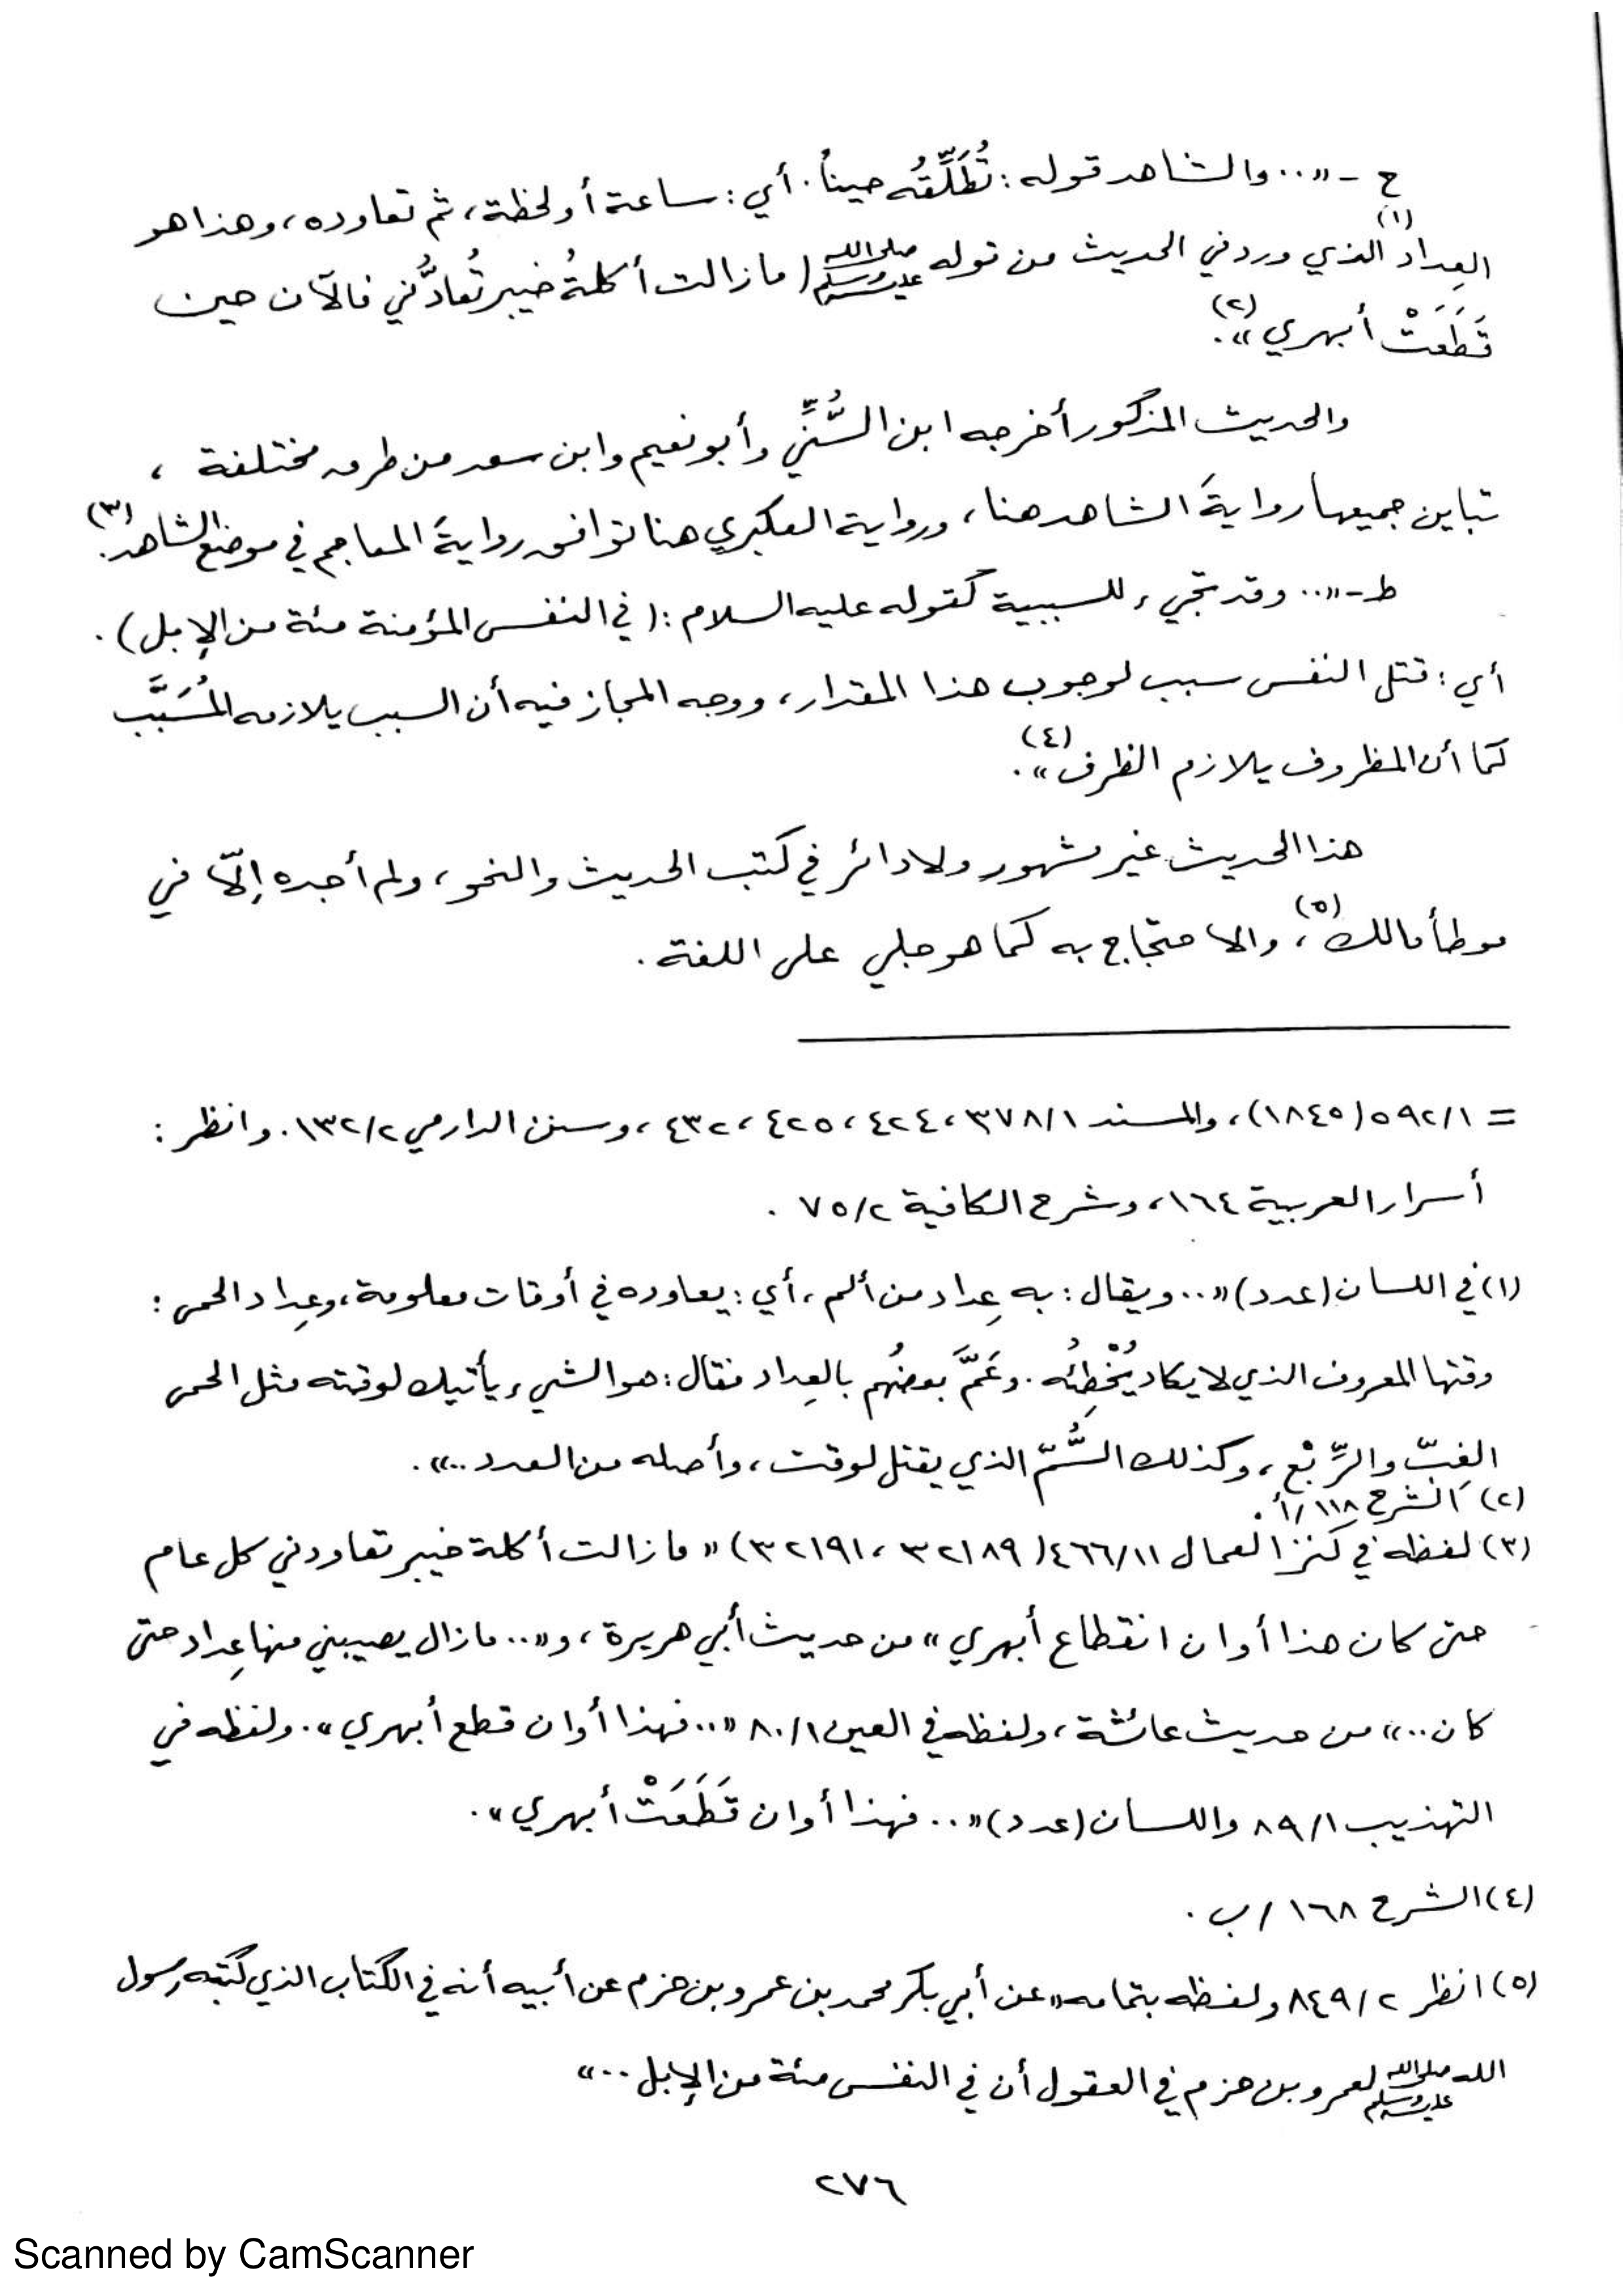 ح - «.. والشاهد قوله: تُطَلِّقُه حيناً. أي: ساعة أو لحظة، ثم تعاوده، وهذا هو
العِداد(١) الذي ورد في الحديث من قوله ﷺ (ما زالت أكلةُ خيبر تُعادُّني فالآن حين
قَطَعَتْ أبهري»(٢).
والحديث المذكور أخرجه ابن السُّنِّي وأبو نعيم وابن سعد من طرق مختلفة ،
تباين جميعها روايةَ الشاهد هنا، ورواية العكبري هنا توافق روايةَ المعاجم في موضع الشاهد(٣).
ط - «.. وقد تجيء للسببية كقوله عليه السلام: (في النفس المؤمنة مئة من الإبل).
أي: قتل النفس سبب لوجوب هذا المقدار، ووجه المجاز فيه أن السبب يلازمه المُسَبَّب
كما أن المظروف يلازم الظرف»(٤).
هذا الحديث غير مشهور ولا دائر في كتب الحديث والنحو، ولم أجده إلّا في
موطأ مالك(٥)، والاحتجاج به كما هو جلي على اللغة.
= ٥٩٢/١ (١٨٤٥)، والمسند ٣٧٨/١، ٤٢٤، ٤٢٥، ٤٣٢، وسنن الدارمي ١٣٢/٢. وانظر:
أسرار العربية ١٦٤، وشرح الكافية ٧٥/٢ .
(١) في اللسان (عدد) «.. ويقال: به عِداد من ألم، أي: يعاوده في أوقات معلومة، وعِداد الحمى:
وقتها المعروف الذي لا يكاد يُخْطِئُه. وعَمَّ بعضُهم بالعِداد فقال: هو الشيء يأتيك لوقته مثل الحمى
الغِبّ والرِّبْع، وكذلك السُّمّ الذي يقتل لوقت، وأصله من العدد ..».
(٢) الشرح ١١٨/أ.
(٣) لفظه في كنز العمال ٤٦٦/١١ (٣٢١٨٩، ٣٢١٩١) «ما زالت أكلة خيبر تعاودني كل عام
حتى كان هذا أوان انقطاع أبهري» من حديث أبي هريرة، و«.. ما زال يصيبني منها عِداد حتى
كان ..» من حديث عائشة، ولفظه في العين ٨٠/١ «.. فهذا أوان قطع أبهري». ولفظه في
التهذيب ٨٩/١ واللسان (عدد) «.. فهذا أوان قَطَعَتْ أبهري».
(٤) الشرح ١٦٨ /ب .
(٥) انظر ٨٤٩/٢ ولفظه بتمامه «عن أبي بكر محمد بن عمرو بن حزم عن أبيه أنه في الكتاب الذي كتبه رسول
الله ﷺ لعمرو بن حزم في العقول أن في النفس مئة من الإبل ..»
٢٧٦
Scanned by CamScanner